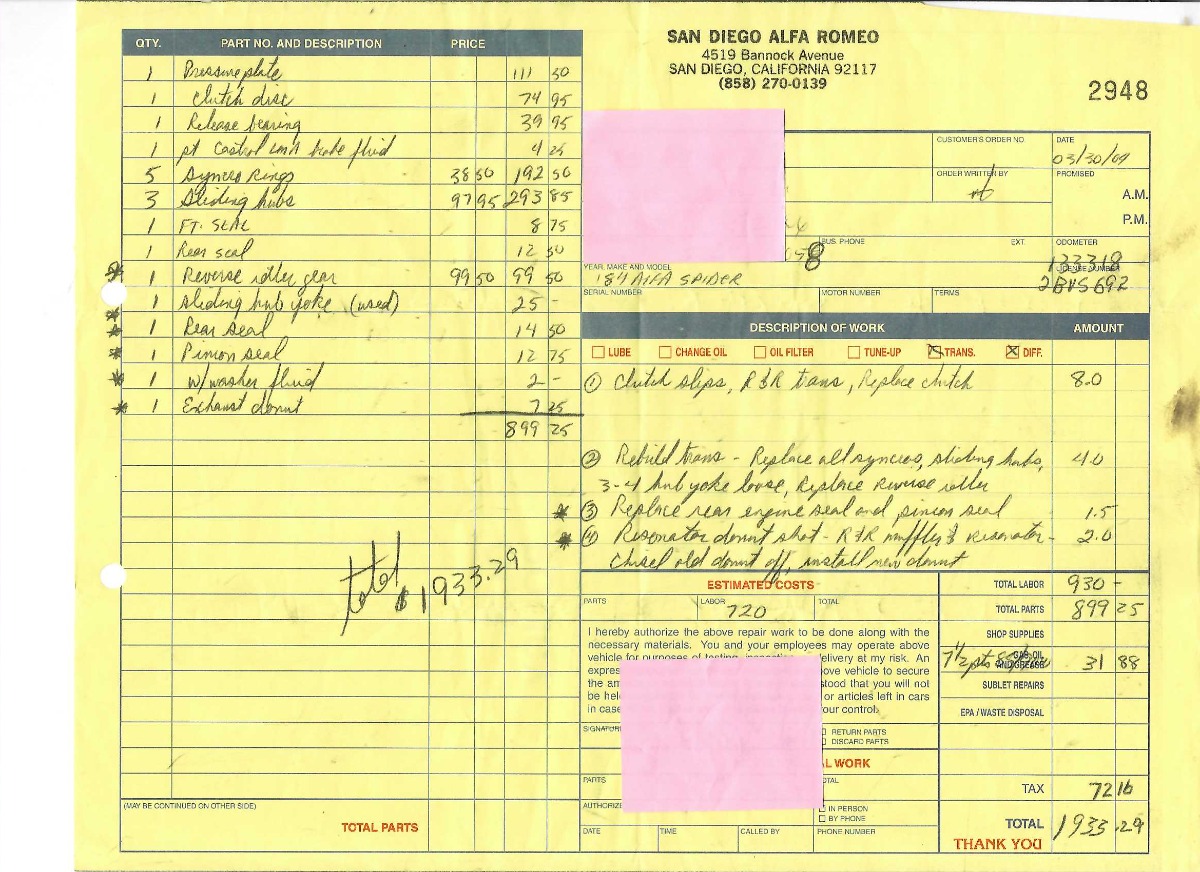 SAN DIEGO ALFA ROMEO
4519 Bannock Avenue
SAN DIEGO, CALIFORNIA 92117
(858) 270-0139
2948
QTY. PART NO. AND DESCRIPTION PRICE
1 Pressure plate 111 50
1 Clutch disc 74 95
1 Release bearing 39 95
1 pt Castrol brake fluid 4 25
5 Syncro Rings 38 50 192 50
3 Sliding hubs 97 95 293 85
1 FT. SEAL 8 75
1 Rear seal 12 50
* 1 Reverse idler gear 99 50 99 50
* 1 Sliding hub yoke (used) 25 -
* 1 Rear seal 14 50
* 1 Pinion seal 12 75
* 1 w/washer fluid 2 -
* 1 Exhaust donut 7 25
899 25
total $1933.29
(MAY BE CONTINUED ON OTHER SIDE)
TOTAL PARTS
CUSTOMER'S ORDER NO. DATE
03/30/09
ORDER WRITTEN BY PROMISED
A.M.
P.M.
BUS. PHONE EXT. ODOMETER
8 133318
YEAR, MAKE AND MODEL LICENSE NUMBER
'84 ALFA SPIDER 2BVS692
SERIAL NUMBER MOTOR NUMBER TERMS
DESCRIPTION OF WORK AMOUNT
LUBE CHANGE OIL OIL FILTER TUNE-UP TRANS. DIFF.
① Clutch slips, R&R trans, Replace clutch 8.0
② Rebuild trans - Replace all syncros, sliding hubs, 4.0
3-4 hub yoke loose, Replace Reverse idler
* ③ Replace rear engine seal and pinion seal 1.5
* ④ Resonator donut shot - R&R muffler & resonator - 2.0
Chisel old donut off, install new donut
ESTIMATED COSTS
PARTS LABOR TOTAL
720
I hereby authorize the above repair work to be done along with the
necessary materials. You and your employees may operate above
vehicle for purposes of testing, inspection delivery at my risk. An
expres ove vehicle to secure
the am stood that you will not
be hel or articles left in cars
in case our control.
SIGNATURE
RETURN PARTS
DISCARD PARTS
L WORK
PARTS OTAL
AUTHORIZE
IN PERSON
BY PHONE
DATE TIME CALLED BY PHONE NUMBER
TOTAL LABOR 930 -
TOTAL PARTS 899 25
SHOP SUPPLIES
GAS, OIL
AND GREASE
7 1/2 pts 31 88
SUBLET REPAIRS
EPA / WASTE DISPOSAL
TAX 72 16
TOTAL 1933.29
THANK YOU